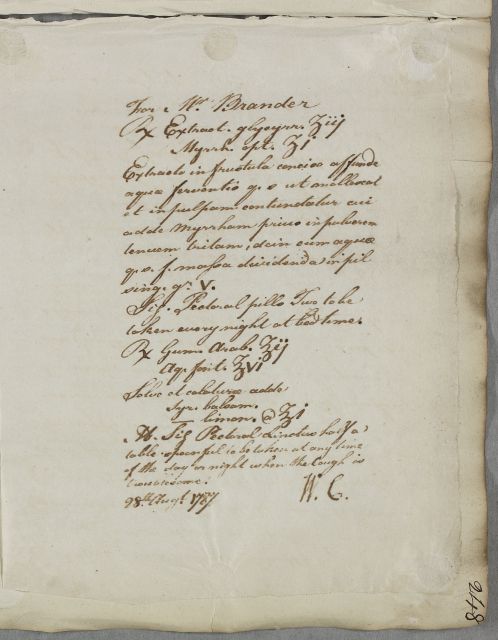 For Mr Brander
Rx Extract. glycyrr. ʒiij
Myrrh. opt. ʒi
Extracto in frustula conciso affunde
aquæ ferventis q. s. ut mollescat
et in pulpam contundatur cui
adde Myrrham prius in pulverem
tenuem tritam, dein cum aquæ
q. s. f. massa dividenda in pil
sing. gr. V.
Sig. Pectoral pills Two to be
taken every night at bedtime.
Rx Gum. Arab. ʒij
Aq. font. ʒvi
Solve et colaturæ adde
Syr. balsam.
limon. @ ʒi
M. Sig Pectoral Linctus half a
table spoonful to be taken at any time
of the day or night when the Cough is
troublesome.
28th Augt. 1787 W. C.
248